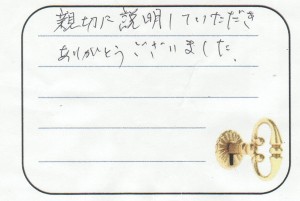 親切に説明していただき
ありがとうございました.